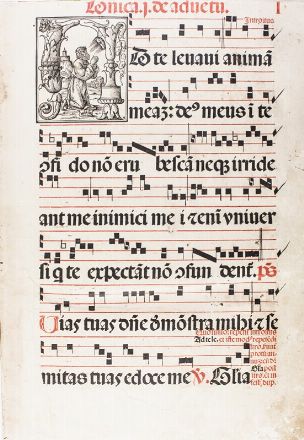 Dominica .j. de aduentu. I
Introitus
AD te leuaui animā
meaz: deꝰ meus i te
ꝯfi do nō eru bescā neqꝫ irride
ant me inimici me i ⁊eni vniuer
si q te expectāt nō ꝯfun dent. p̄s
Vias tuas dn̄e demōstra mihi: ⁊ se
mitas tuas edoce me ℣. Glia